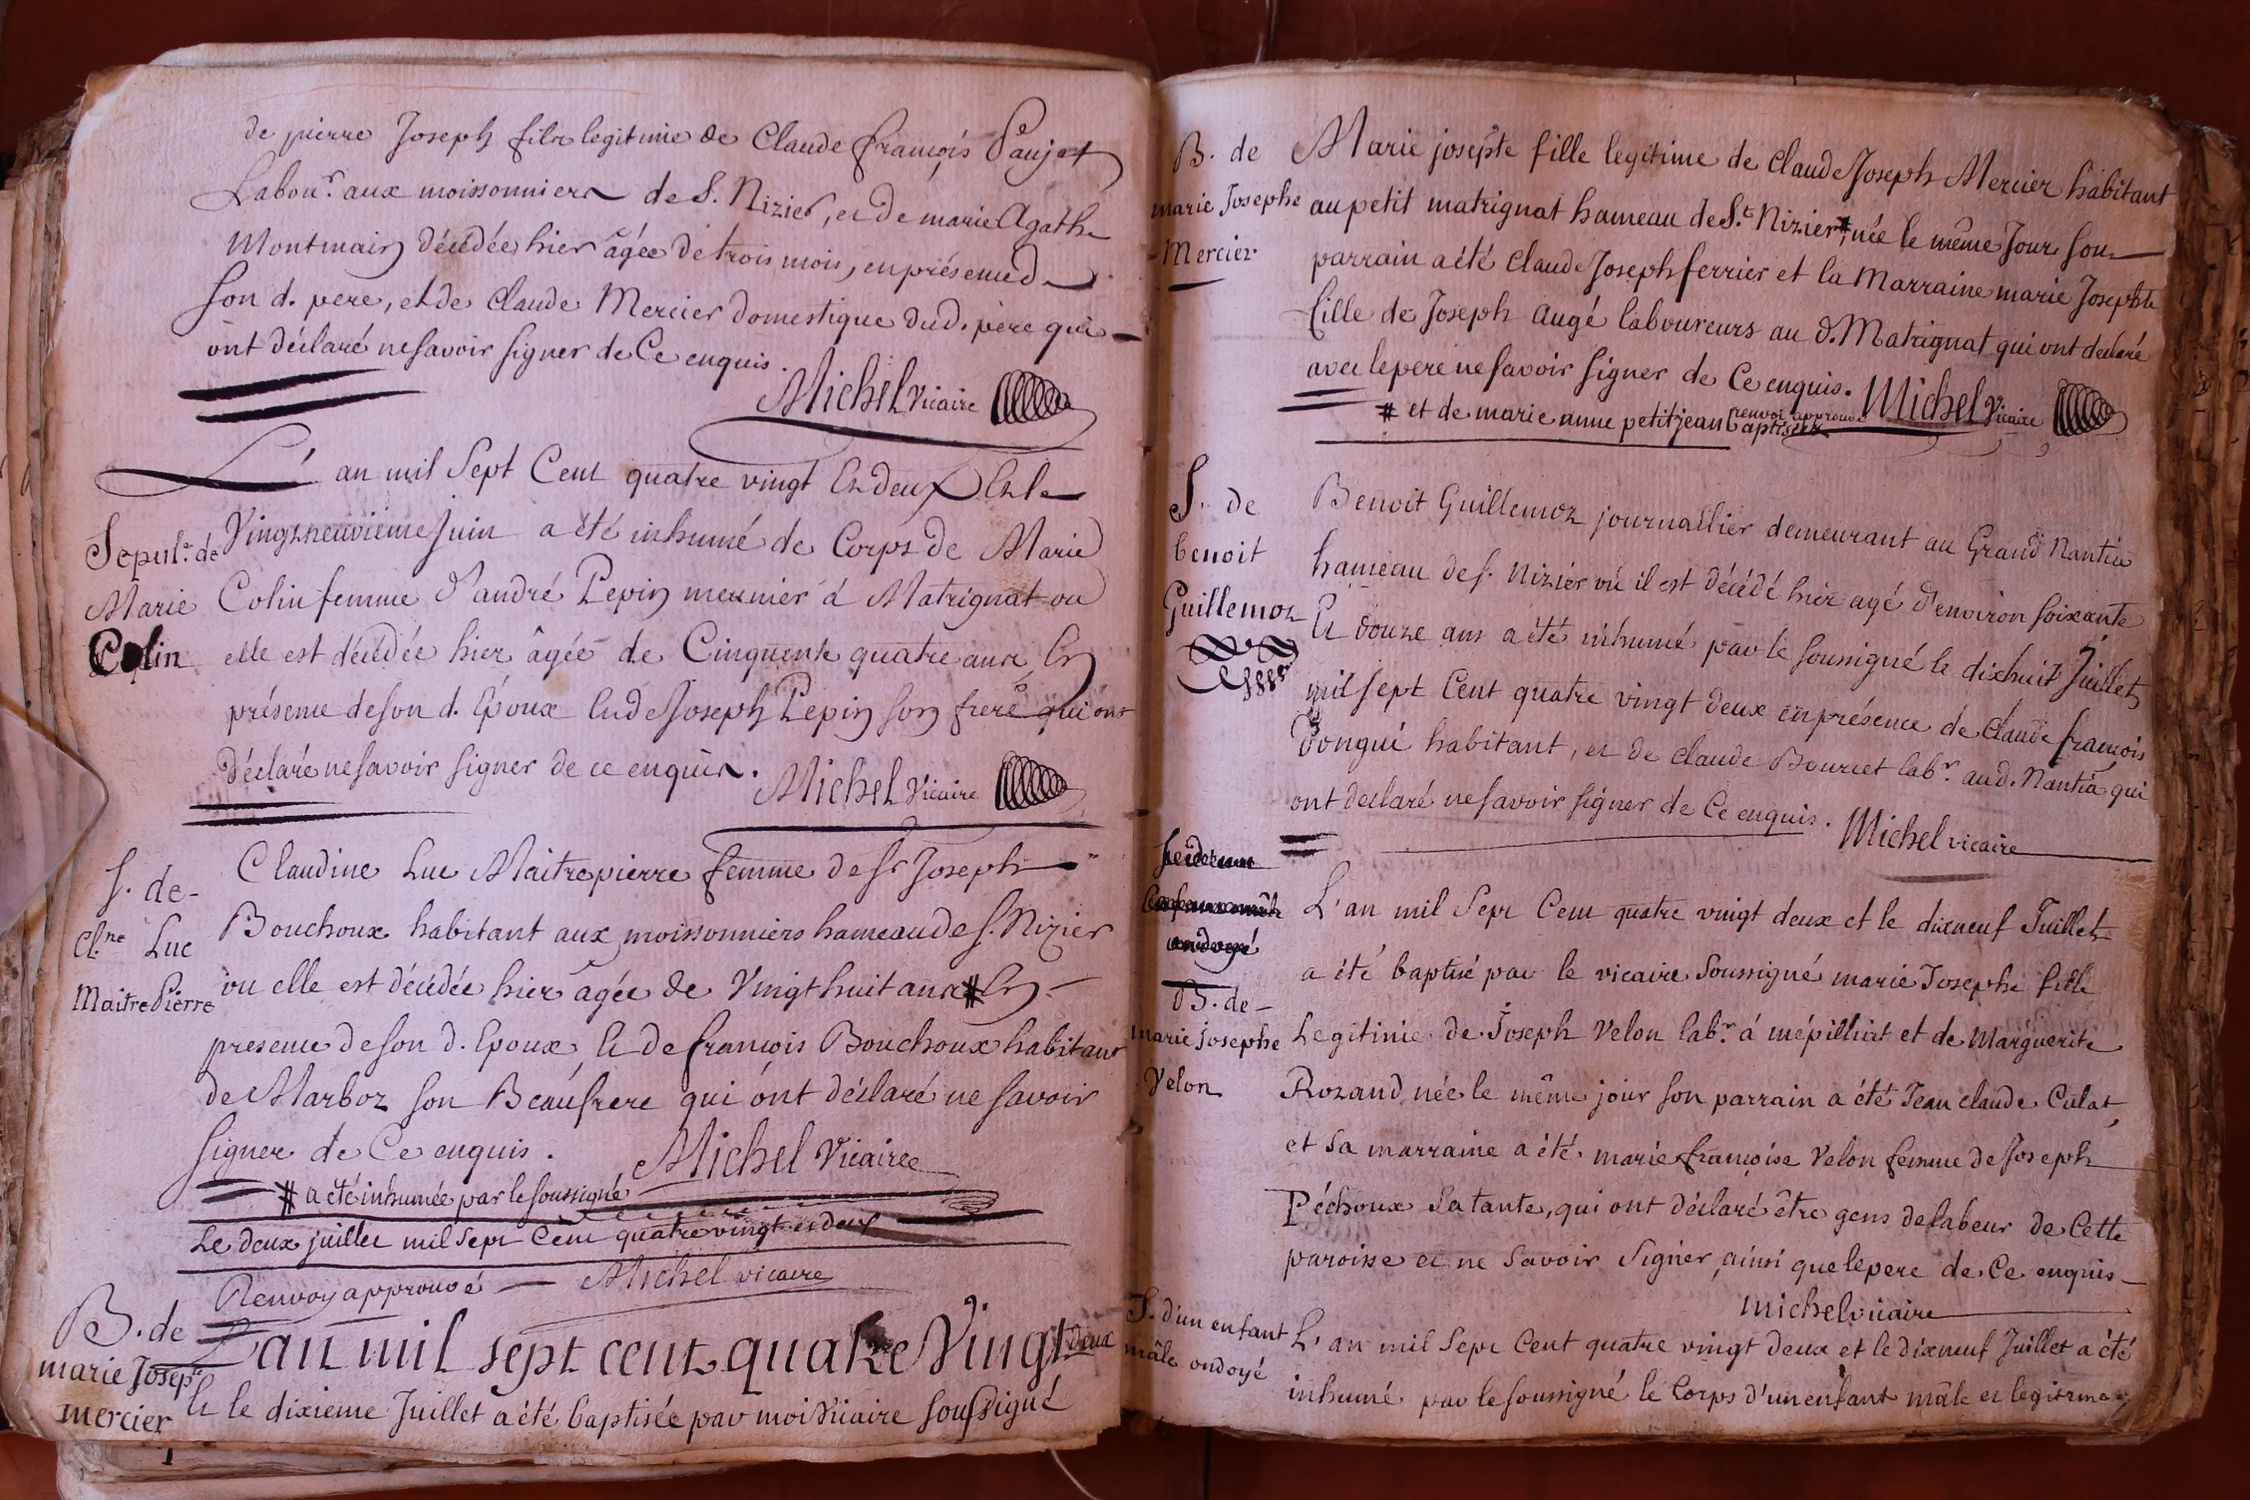 de pierre Joseph fils legitime de Claude françois Paujat
Labour. aux moissonniers de S. Nizier, et de marie Agathe
Montmain décédée hier âgée de trois mois, en présence de
son d. pere, et de Claude Mercier domestique dud. pere qui
ont déclaré ne savoir signer de Ce enquis.
Michel vicaire
L'an mil Sept Cent quatre vingt Et deux Et le
Sepul. de
Marie
Colin
Vingt neuvieme Juin a été inhumé de Corps de Marie
Colin femme d'andré Pepin meunier á Matrignat ou
elle est décédée hier âgée de Cinquente quatre ans, En
présence de son d. Epoux Et de Joseph Pepin son frere qui ont
déclaré ne savoir signer de ce enquis.
Michel vicaire
S. de
Cl.ne Luc
Maitre Pierre
Claudine Luc Maitrepierre femme de Sr Joseph
Bouchoux habitant aux moissonniers hameau de S. Nizier
ou elle est décédée hier âgée de Vingt huit ans # En
presence de son d. Epoux, Et de françois Bouchoux habitant
de Marboz son Beaufrere qui ont déclaré ne savoir
signer de Ce enquis.
Michel Vicaire
# a été inhumée par le soussigné
Le deux juillet mil sept Cent quatre vingt et deux
Renvoy approuvé Michel vicaire
B. de
marie Josepte
mercier
L'an mil sept cent quatre Vingt deux
Et le dixieme Juillet a été baptisée par moi Vicaire soussigné
B. de
marie Josephe
Mercier
Marie josepte fille legitime de Claude Joseph Mercier habitant
au petit matrignat hameau de St. Nizier # née le même Jour son
parrain a été Claude Joseph ferrier et la Marraine marie Josephte
fille de Joseph Augé laboureurs au d. Matrignat qui ont declaré
avec le pere ne savoir signer de Ce enquis. Michel Vicaire
# et de marie anne petitjean renvoi approuvé
S. de
benoit
Guillemoz
Benoit Guillemoz journallier demeurant au Grand Nantia
hameau de S. Nizier ou il est décédé hier agé d'environ soixante
Et douze ans a été inhumé par le soussigné le dixhuit Juillet
mil sept Cent quatre vingt deux en présence de Claude françois
Dongui habitant, et de Claude Bourcet labr. aud. Nantia qui
ont declaré ne savoir signer de Ce enquis. Michel vicaire
B. de
marie josephe
Velon
L'an mil Sept Cent quatre vingt deux et le dixneuf Juillet
a été baptisé par le vicaire Soussigné marie Josephe fille
Legitime de Joseph Velon labr. á mépilliat et de Marguerite
Rozand née le même jour son parrain a été Jean Claude Culat,
et Sa marraine a été marie françoise Velon femme de Joseph
Péchoux Sa tante, qui ont déclaré être gens de labeur de Cette
paroisse et ne Savoir Signer, ainsi que le pere de Ce enquis
michel vicaire
S. d'un enfant
mâle ondoyé
L'an mil Sept Cent quatre vingt deux et le dixneuf Juillet a été
inhumé par le soussigné le Corps d'un enfant mâle et legitime